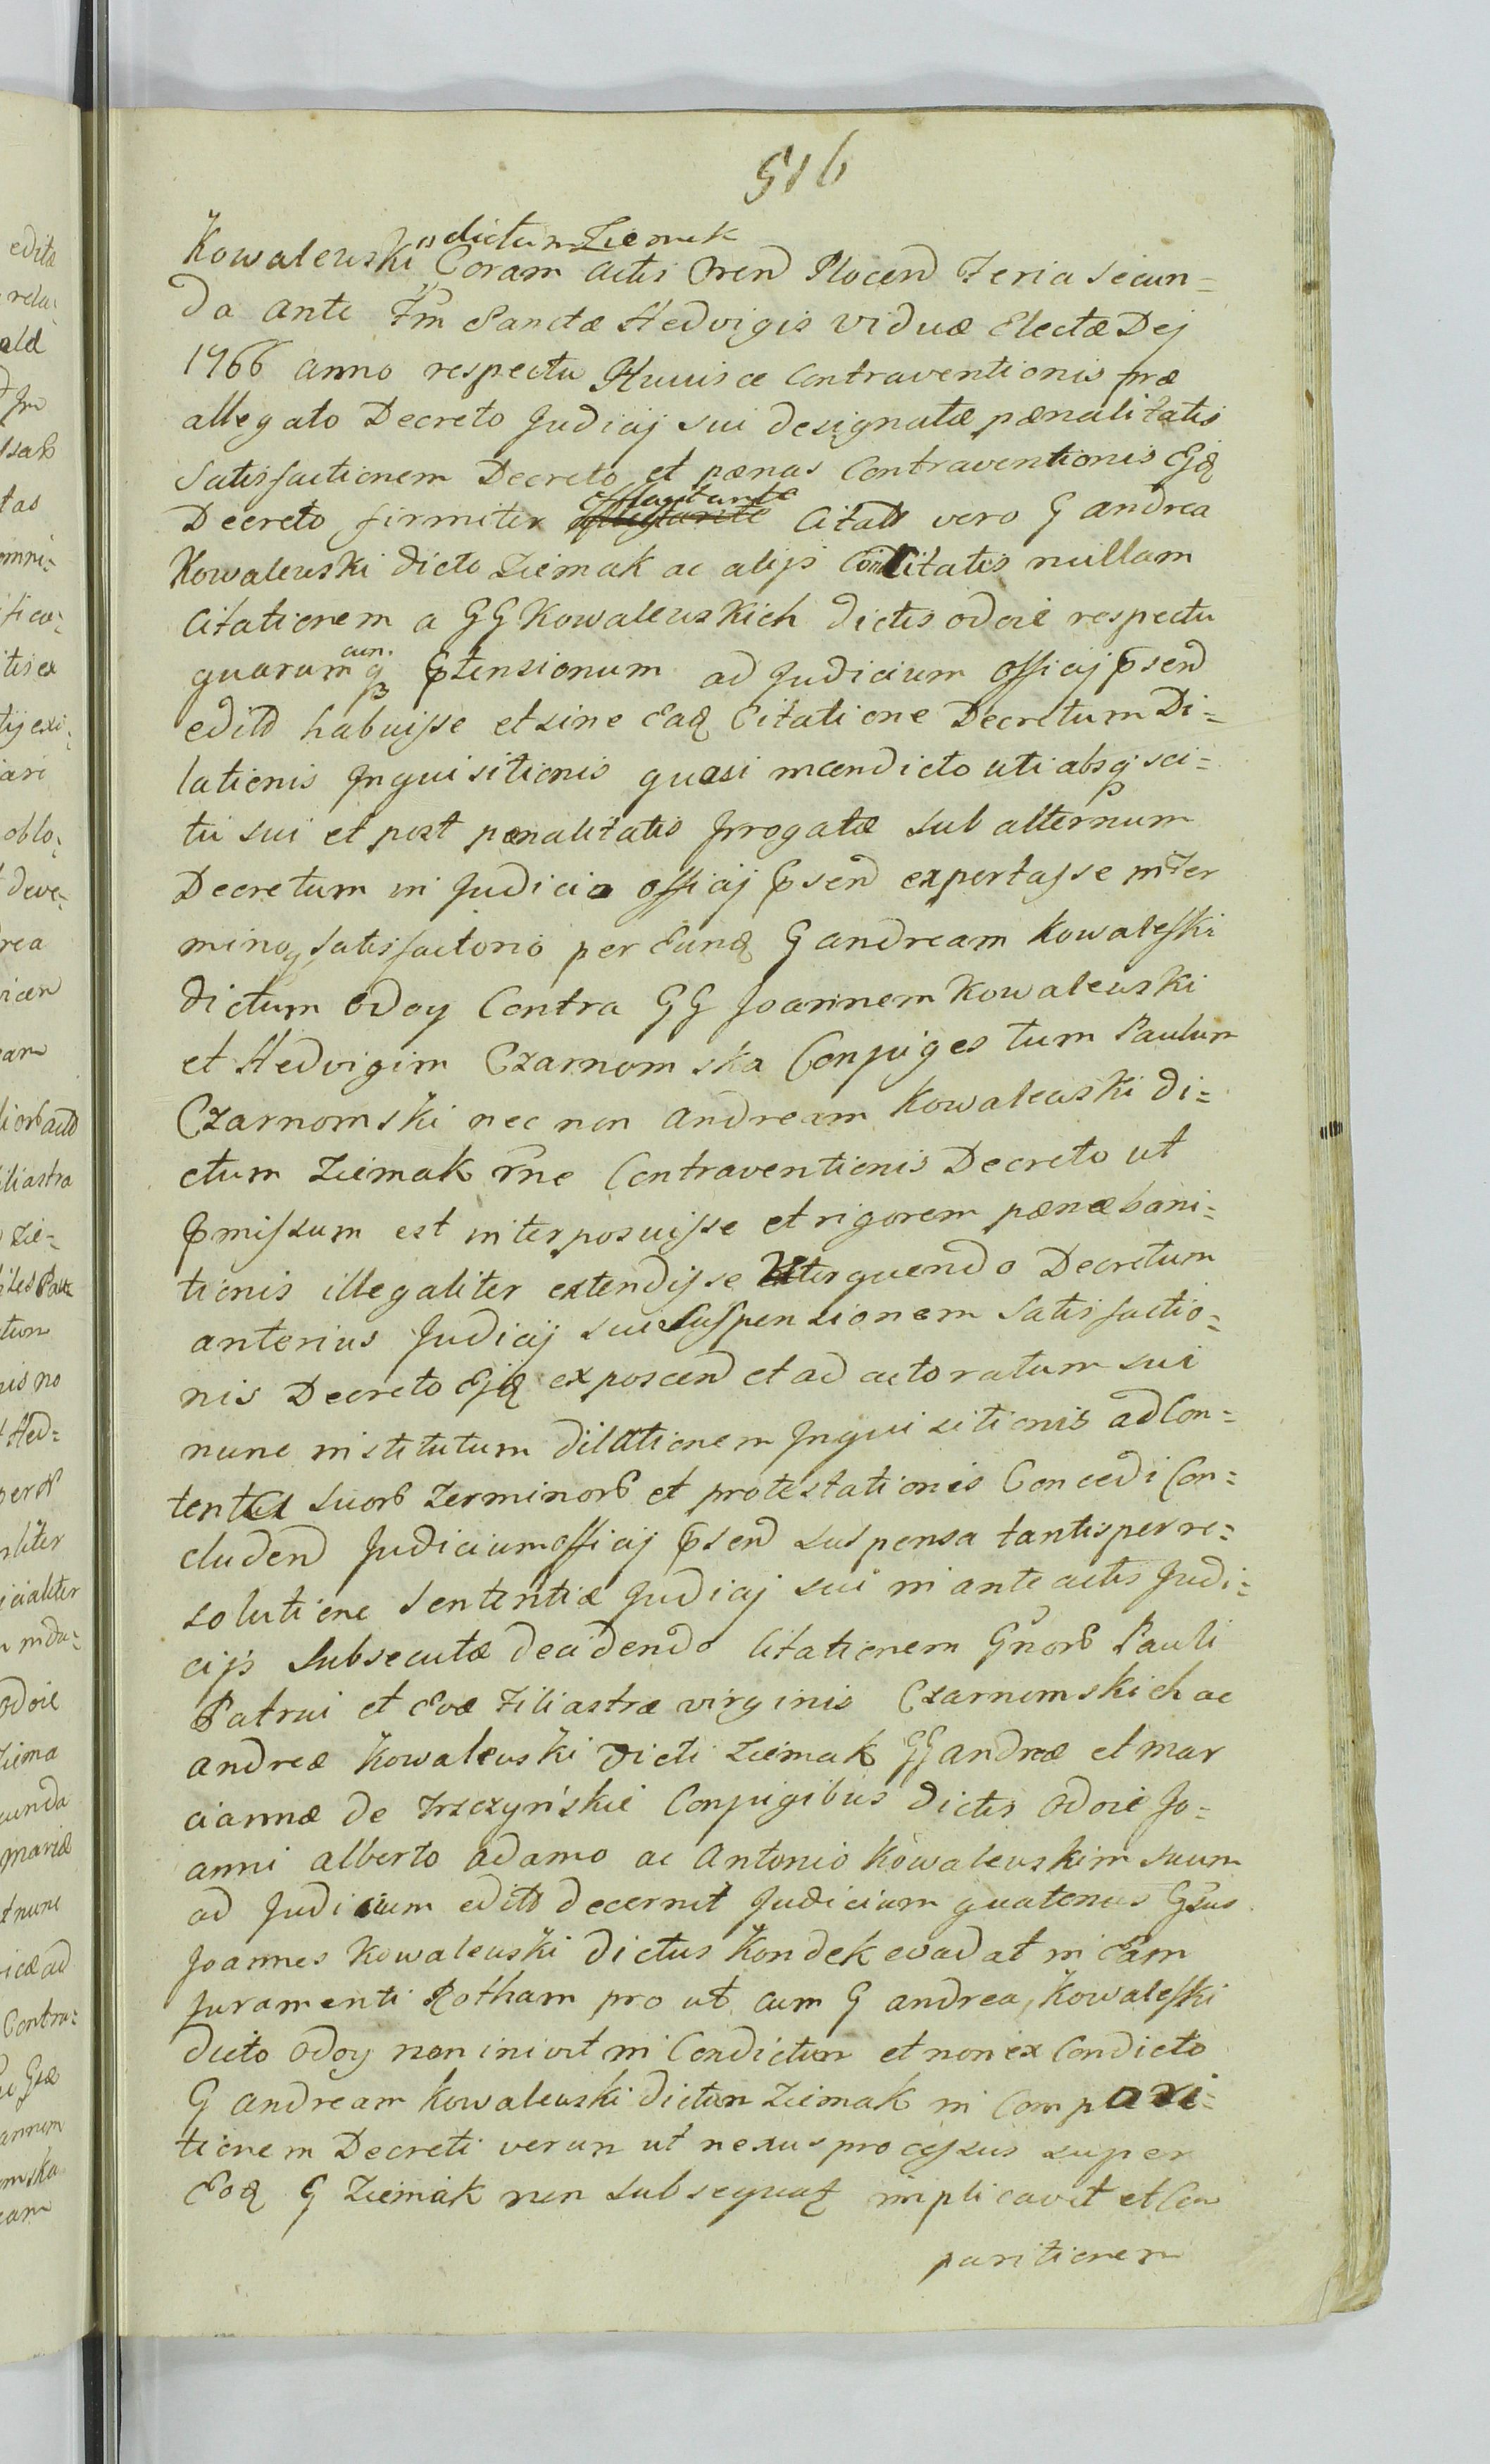 516
dictum Ziemak
Kowalewski Coram Actis Cren̄d Plocen̄d Feria Secun=
da ante Fm̄ Sanctæ Hedvigis viduæ Electæ Dej
1766 anno respectu Huiusce Contraventionis præ
allegato Decreto Judicij sui designatæ pænalitatis
Satisfactionem Decreto et pænas Contraventionis Ejq
efflagitante
Decreto firmiter Citatt vero G andrea
Kowalewski dicto Ziemak ac alijs Concitatis nullam
Citationem a GG Kowalewskich dictis odoie respectu
cun.
quarumq ꝑtensionum ad Judicium Officij ꝑsen̄d
edittt habuisse et sine Eaq Citatione Decretum Di=
lationis Inquisitionis quasi in condicto uti absq sci=
tu sui et post pænalitatis Irrogatæ sub alternum
Decretum in Judicio officij ꝑsen̄d exportasse in Ter
mino Satisfactorio per Eunq G andream Kowaleski
dictum odoy Contra GG Joannem Kowalewski
et Hedvigim Czarnomska Conjuges tum Paulum
Czarnomski nec non andream Kowalewski di=
ctum Ziemak rn̄e Contraventionis Decreto ut
ꝑmissum est interposuisse et rigorem pænæ bani=
tionis illegaliter extendisse Utrerquendo Decretum
anterius Judicij sui Suspensionem Satisfactio=
nis Decreto Ejq exposcen̄d et ad actoratum sui
nunc institutum dilationem Inquisitionis ad Con=
tenta suorꝭ Terminorꝭ et protestationis Concedi Con=
cluden̄d Judicium officij ꝑsen̄d suspensa tantisper re=
solutione Sententiæ Judicij sui in ante actis Judi=
cijs Subsecutæ decidendo Citationem Gn̄orꝭ Pauli
Patrui et Evæ Filiastræ virginis Czarnomskich ac
andreæ Kowalewski dicti Ziemak GG andreæ et Mar
ciannæ de Trzczyńskie Conjugibus dictis Odoie Jo=
anni alberto adamo ac Antonio Kowalewskim suum
ad Judicium edittt decernit Judicium quatenus Gsus
Joannes Kowalewski dictus Kondek evadat in Eam
Juramenti Rotham pro ut cum G andrea Kowaleski
dicto Odoy non inivit in Condictum et non ex Condicto
G andream Kowalewski dictum Ziemak in Compari=
tionem Decreti verum ut nexus processus super
Eoq G Ziemak non subsequatꝫ implicavit et Com
paritionem